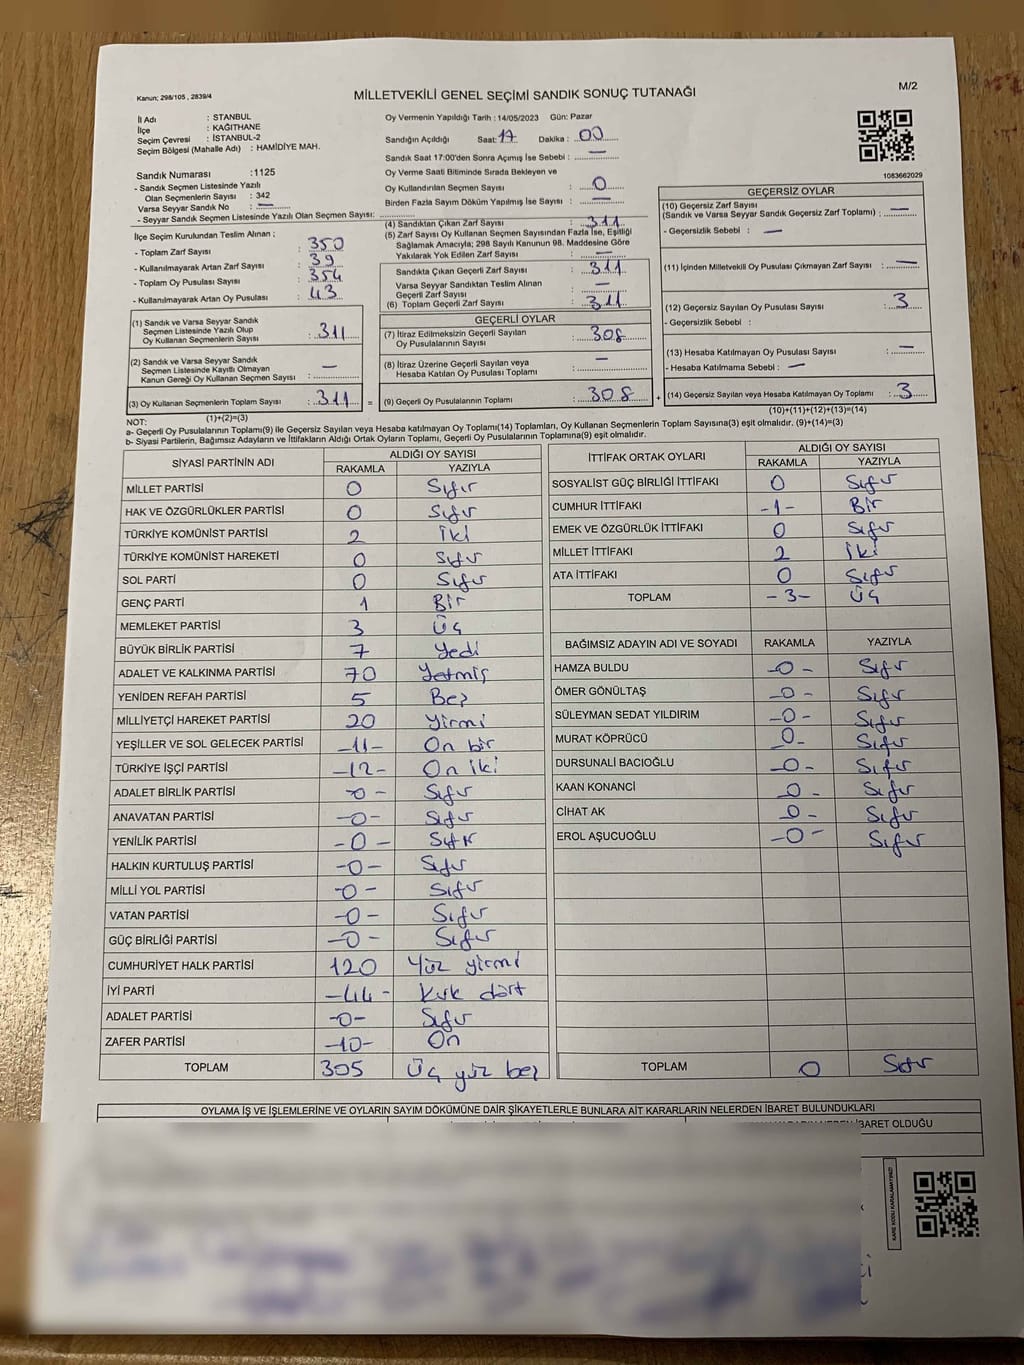 Kanun; 298/105 , 2839/4
MİLLETVEKİLİ GENEL SEÇİMİ SANDIK SONUÇ TUTANAĞI
M/2
İl Adı : STANBUL
İlçe : KAĞITHANE
Seçim Çevresi : İSTANBUL-2
Seçim Bölgesi (Mahalle Adı) : HAMİDİYE MAH.
Sandık Numarası :1125
- Sandık Seçmen Listesinde Yazılı
Olan Seçmenlerin Sayısı : 342
Varsa Seyyar Sandık No : —
- Seyyar Sandık Seçmen Listesinde Yazılı Olan Seçmen Sayısı:
Oy Vermenin Yapıldığı Tarih : 14/05/2023 Gün: Pazar
Sandığın Açıldığı Saat: 17 Dakika : 00
Sandık Saat 17:00'den Sonra Açımış İse Sebebi : —
Oy Verme Saati Bitiminde Sırada Bekleyen ve
Oy Kullandırılan Seçmen Sayısı : 0
Birden Fazla Sayım Döküm Yapılmış İse Sayısı : —
1083662029
İlçe Seçim Kurulundan Teslim Alınan ;
- Toplam Zarf Sayısı : 350
- Kullanılmayarak Artan Zarf Sayısı : 39
- Toplam Oy Pusulası Sayısı : 354
- Kullanılmayarak Artan Oy Pusulası : 43
(1) Sandık ve Varsa Seyyar Sandık
Seçmen Listesinde Yazılı Olup
Oy Kullanan Seçmenlerin Sayısı : 311
(2) Sandık ve Varsa Seyyar Sandık
Seçmen Listesinde Kayıtlı Olmayan
Kanun Gereği Oy Kullanan Seçmen Sayısı : —
(3) Oy Kullanan Seçmenlerin Toplam Sayısı : 311 =
(1)+(2)=(3)
(4) Sandıktan Çıkan Zarf Sayısı : 311
(5) Zarf Sayısı Oy Kullanan Seçmen Sayısından Fazla İse, Eşitliği
Sağlamak Amacıyla; 298 Sayılı Kanunun 98. Maddesine Göre
Yakılarak Yok Edilen Zarf Sayısı : —
Sandıkta Çıkan Geçerli Zarf Sayısı : 311
Varsa Seyyar Sandıktan Teslim Alınan
Geçerli Zarf Sayısı : —
(6) Toplam Geçerli Zarf Sayısı : 311
GEÇERLİ OYLAR
(7) İtiraz Edilmeksizin Geçerli Sayılan
Oy Pusulalarının Sayısı : 308
(8) İtiraz Üzerine Geçerli Sayılan veya
Hesaba Katılan Oy Pusulası Toplamı : —
(9) Geçerli Oy Pusulalarının Toplamı : 308 +
GEÇERSİZ OYLAR
(10) Geçersiz Zarf Sayısı
(Sandık ve Varsa Seyyar Sandık Geçersiz Zarf Toplamı) : —
- Geçersizlik Sebebi : —
(11) İçinden Milletvekili Oy Pusulası Çıkmayan Zarf Sayısı : —
(12) Geçersiz Sayılan Oy Pusulası Sayısı : 3
- Geçersizlik Sebebi :
(13) Hesaba Katılmayan Oy Pusulası Sayısı : —
- Hesaba Katılmama Sebebi : —
(14) Geçersiz Sayılan veya Hesaba Katılmayan Oy Toplamı : 3
(10)+(11)+(12)+(13)=(14)
NOT:
a- Geçerli Oy Pusulalarının Toplamı(9) ile Geçersiz Sayılan veya Hesaba katılmayan Oy Toplamı(14) Toplamları, Oy Kullanan Seçmenlerin Toplam Sayısına(3) eşit olmalıdır. (9)+(14)=(3)
b- Siyasi Partilerin, Bağımsız Adayların ve İttifakların Aldığı Ortak Oyların Toplamı, Geçerli Oy Pusulalarının Toplamına(9) eşit olmalıdır.
SİYASİ PARTİNİN ADI ALDIĞI OY SAYISI
RAKAMLA YAZIYLA
MİLLET PARTİSİ 0 Sıfır
HAK VE ÖZGÜRLÜKLER PARTİSİ 0 Sıfır
TÜRKİYE KOMÜNİST PARTİSİ 2 İki
TÜRKİYE KOMÜNİST HAREKETİ 0 Sıfır
SOL PARTİ 0 Sıfır
GENÇ PARTİ 1 Bir
MEMLEKET PARTİSİ 3 Üç
BÜYÜK BİRLİK PARTİSİ 7 Yedi
ADALET VE KALKINMA PARTİSİ 70 Yetmiş
YENİDEN REFAH PARTİSİ 5 Beş
MİLLİYETÇİ HAREKET PARTİSİ 20 Yirmi
YEŞİLLER VE SOL GELECEK PARTİSİ -11- On bir
TÜRKİYE İŞÇİ PARTİSİ -12- On iki
ADALET BİRLİK PARTİSİ -0- Sıfır
ANAVATAN PARTİSİ -0- Sıfır
YENİLİK PARTİSİ -0- Sıfır
HALKIN KURTULUŞ PARTİSİ -0- Sıfır
MİLLİ YOL PARTİSİ -0- Sıfır
VATAN PARTİSİ -0- Sıfır
GÜÇ BİRLİĞİ PARTİSİ -0- Sıfır
CUMHURİYET HALK PARTİSİ 120 Yüz yirmi
İYİ PARTİ -44- Kırk dört
ADALET PARTİSİ -0- Sıfır
ZAFER PARTİSİ -10- On
TOPLAM 305 Üç yüz beş
İTTİFAK ORTAK OYLARI ALDIĞI OY SAYISI
RAKAMLA YAZIYLA
SOSYALİST GÜÇ BİRLİĞİ İTTİFAKI 0 Sıfır
CUMHUR İTTİFAKI -1- Bir
EMEK VE ÖZGÜRLÜK İTTİFAKI 0 Sıfır
MİLLET İTTİFAKI 2 İki
ATA İTTİFAKI 0 Sıfır
TOPLAM -3- Üç
BAĞIMSIZ ADAYIN ADI VE SOYADI RAKAMLA YAZIYLA
HAMZA BULDU -0- Sıfır
ÖMER GÖNÜLTAŞ -0- Sıfır
SÜLEYMAN SEDAT YILDIRIM -0- Sıfır
MURAT KÖPRÜCÜ 0- Sıfır
DURSUNALİ BACIOĞLU -0- Sıfır
KAAN KONANCİ 0- Sıfır
CİHAT AK 0- Sıfır
EROL AŞUCUOĞLU -0- Sıfır
TOPLAM 0 Sıfır
OYLAMA İŞ VE İŞLEMLERİNE VE OYLARIN SAYIM DÖKÜMÜNE DAİR ŞİKAYETLERLE BUNLARA AİT KARARLARIN NELERDEN İBARET BULUNDUKLARI
İBARET OLDUĞU
KARE KODU KARALAMAYINIZ!